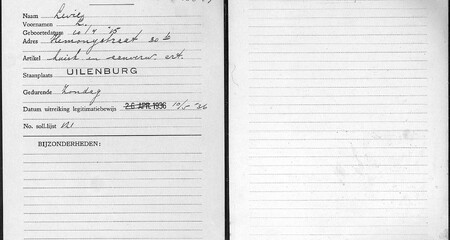 Naam Levie
Voornamen L.
Geboortedatum 10/4 '75
Adres Hemonystraat 30 b
Artikel en aanverw. art.
Standplaats UILENBURG
Gedurende Zondag
Datum uitreiking legitimatiebewijs 26 APR. 1936 10/5 '36
No. soll.lijst
BIJZONDERHEDEN: